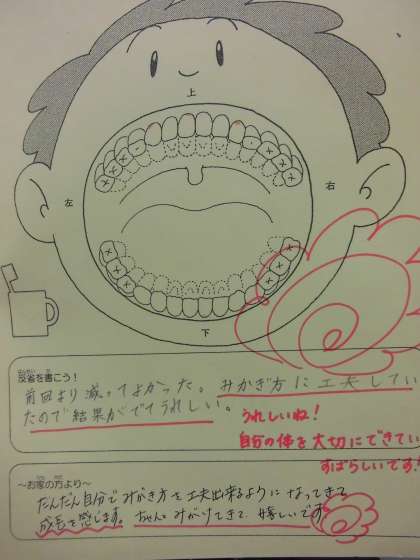 上
左
右
下
はんせい
反省を書こう!
前回より減ってよかった。みがき方に工夫してい
たので結果がでてうれしい。
うれしいね!
自分の体を大切にできてい
すばらしいです!
～お家の方より～
だんだん自分でみがき方を工夫出来るようになってきて
成長を感じます。ちゃんとみがけてきて、嬉しいです